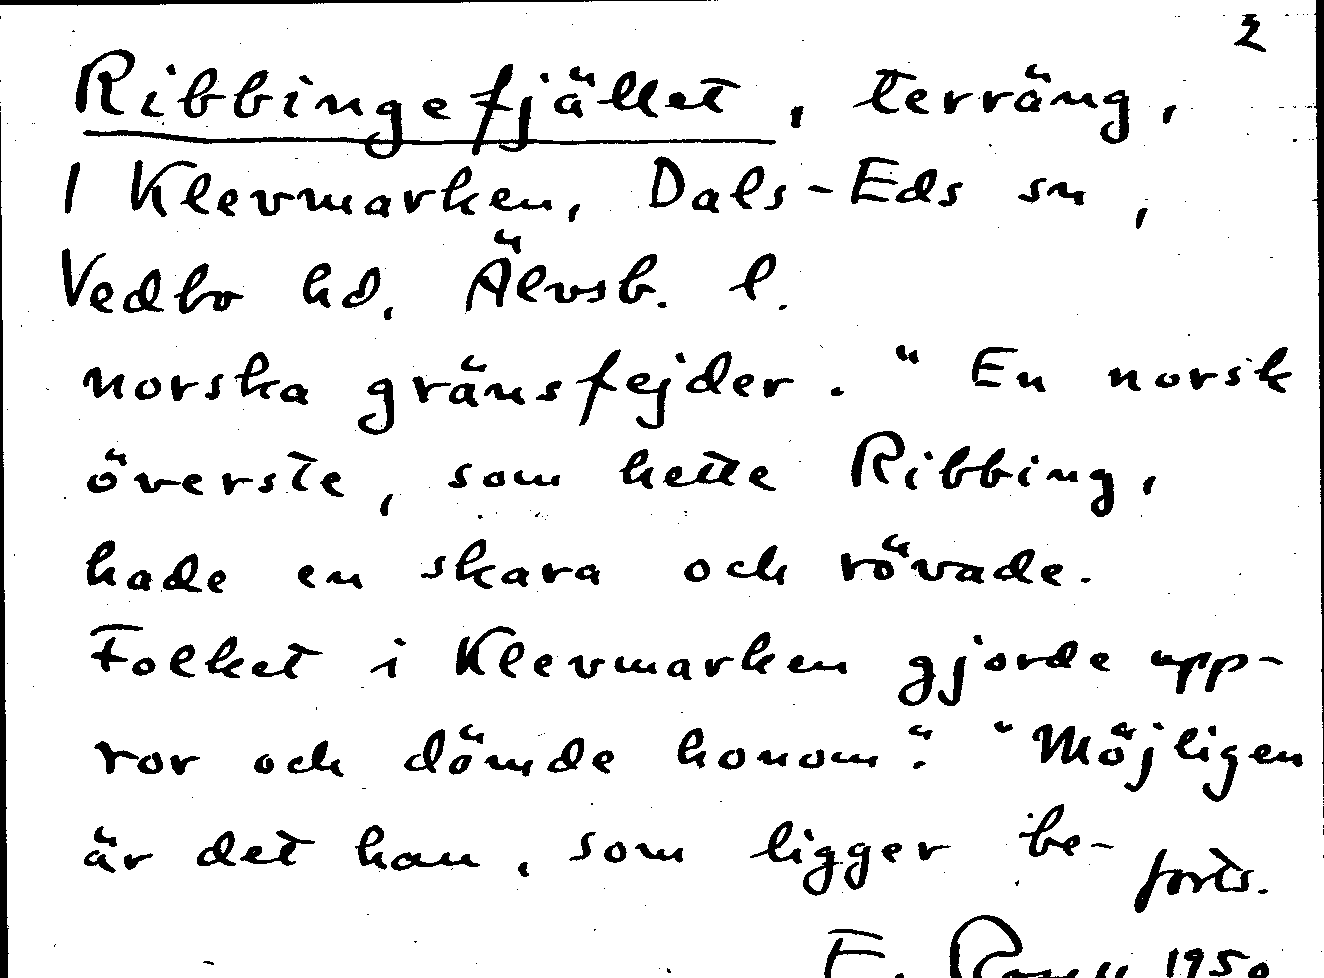 2
Ribbingefjället, terräng,
I Klevmarken, Dals-Eds sn,
Vedbo hd, Älvsb. l.
norska gränsfejder. "En norsk
överste, som hette Ribbing,
hade en skara och rövade.
Folket i Klevmarken gjorde upp-
ror och dömde honom". "Möjligen
är det han, som ligger be-
forts.
E. 1950